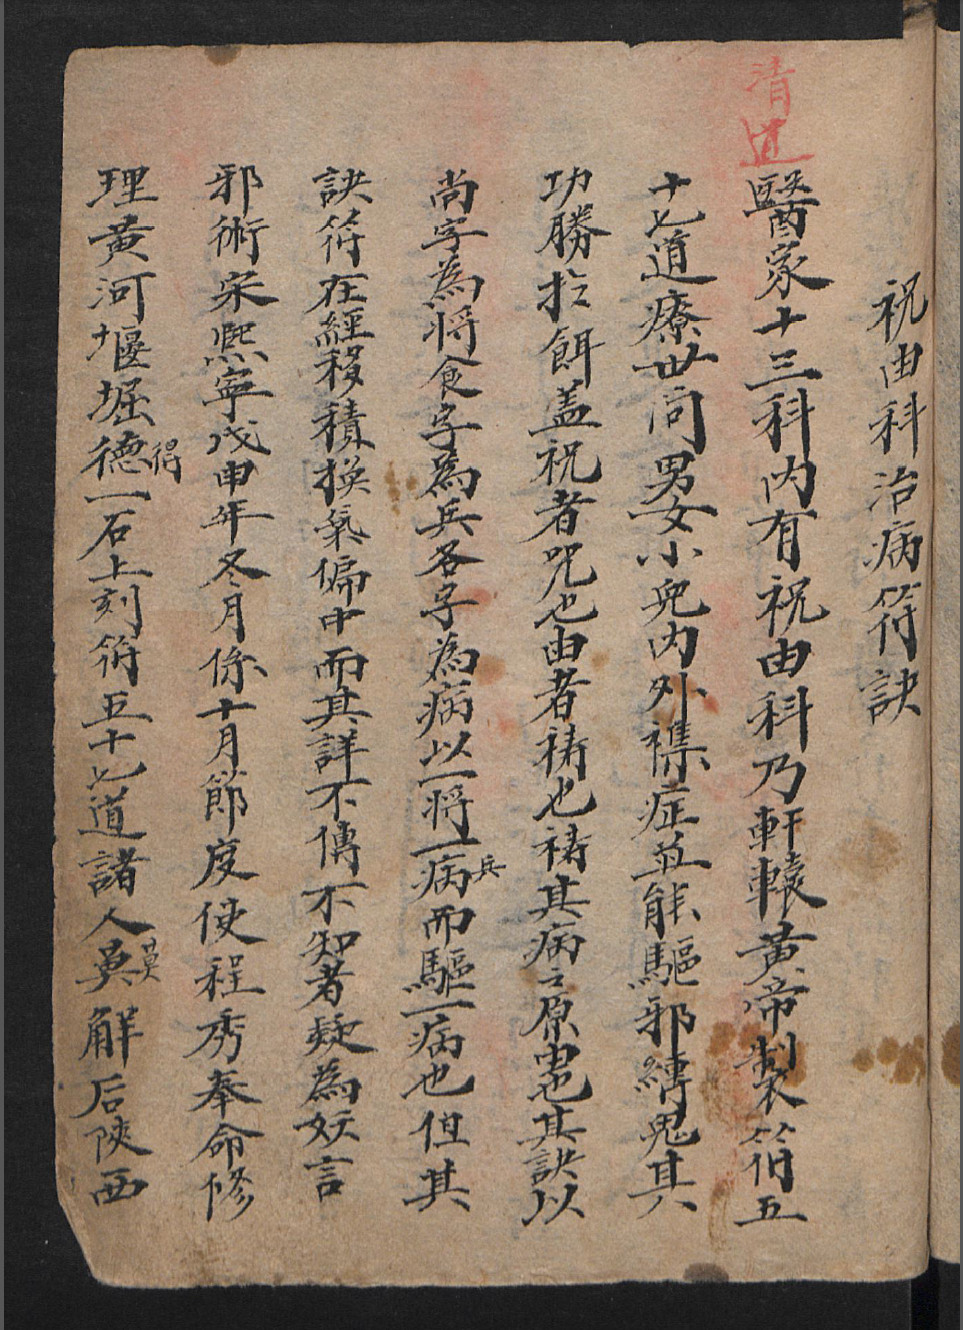 祝由科治病符訣
清道
醫家十三科内有祝由科乃軒轅黃帝製符五
十七道療世间男女小兒内外襍症並能驅邪縛鬼其
功勝扵餌盖祝者咒也由者祷也祷其病之原也其訣以
尚字為将食字為兵各字為病以一将一病兵而驅一病也但其
訣符在經移積換氣偏中而其詳不傳不知者疑為妖言
邪術宋熙寧戊申年冬月係十月節度使程秀奉命修
理黃河堰堀德得一石上刻符五十七道諸人莫莫解后陝西